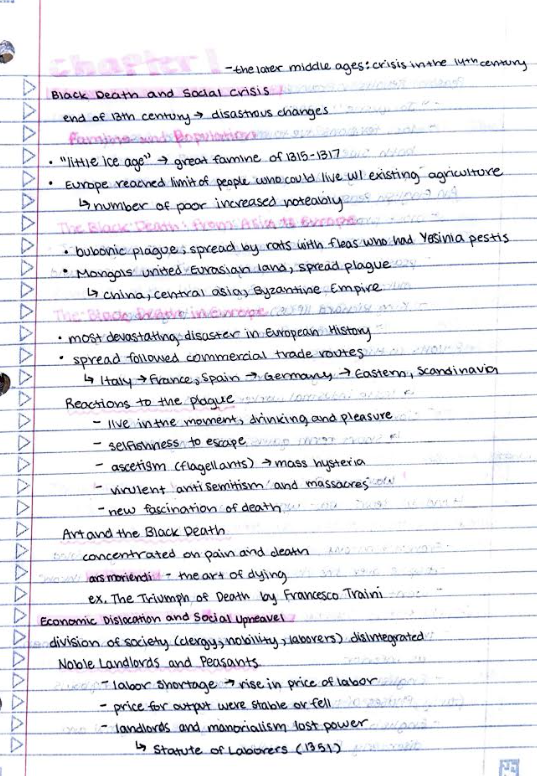 Chapter 1 - the later middle ages: crisis in the 14th century
Black Death and Social crisis
end of 13th century → disastrous changes
Famine and Population
• "little ice age" → great famine of 1315-1317
• Europe reached limit of people who could live w/ existing agriculture
↳ number of poor increased noteably
The Black Death: From Asia to Europe
• bubonic plague; spread by rats with fleas who had Yesinia pestis
• Mongols united Eurasian land, spread plague
↳ china, central asia, Byzantine Empire
The Black Death in Europe
• most devastating disaster in European History
• spread followed commercial trade routes
↳ Italy → France, Spain → Germany → Eastern, Scandinavia
Reactions to the plague
- live in the moment, drinking, and pleasure
- selfishness to escape
- ascetism (flagellants) → mass hysteria
- virulent antisemitism and massacres
- new fascination of death
Art and the Black Death
concentrated on pain and death
ars moriendi - the art of dying
ex. The Triumph of Death by Francesco Traini
Economic Dislocation and Social Upheavel
division of society (clergy, nobility, laborers) disintegrated
Noble Landlords and Peasants
- labor shortage → rise in price of labor
- price for output were stable or fell
- landlords and manorialism lost power
↳ Statute of Laborers (1351)